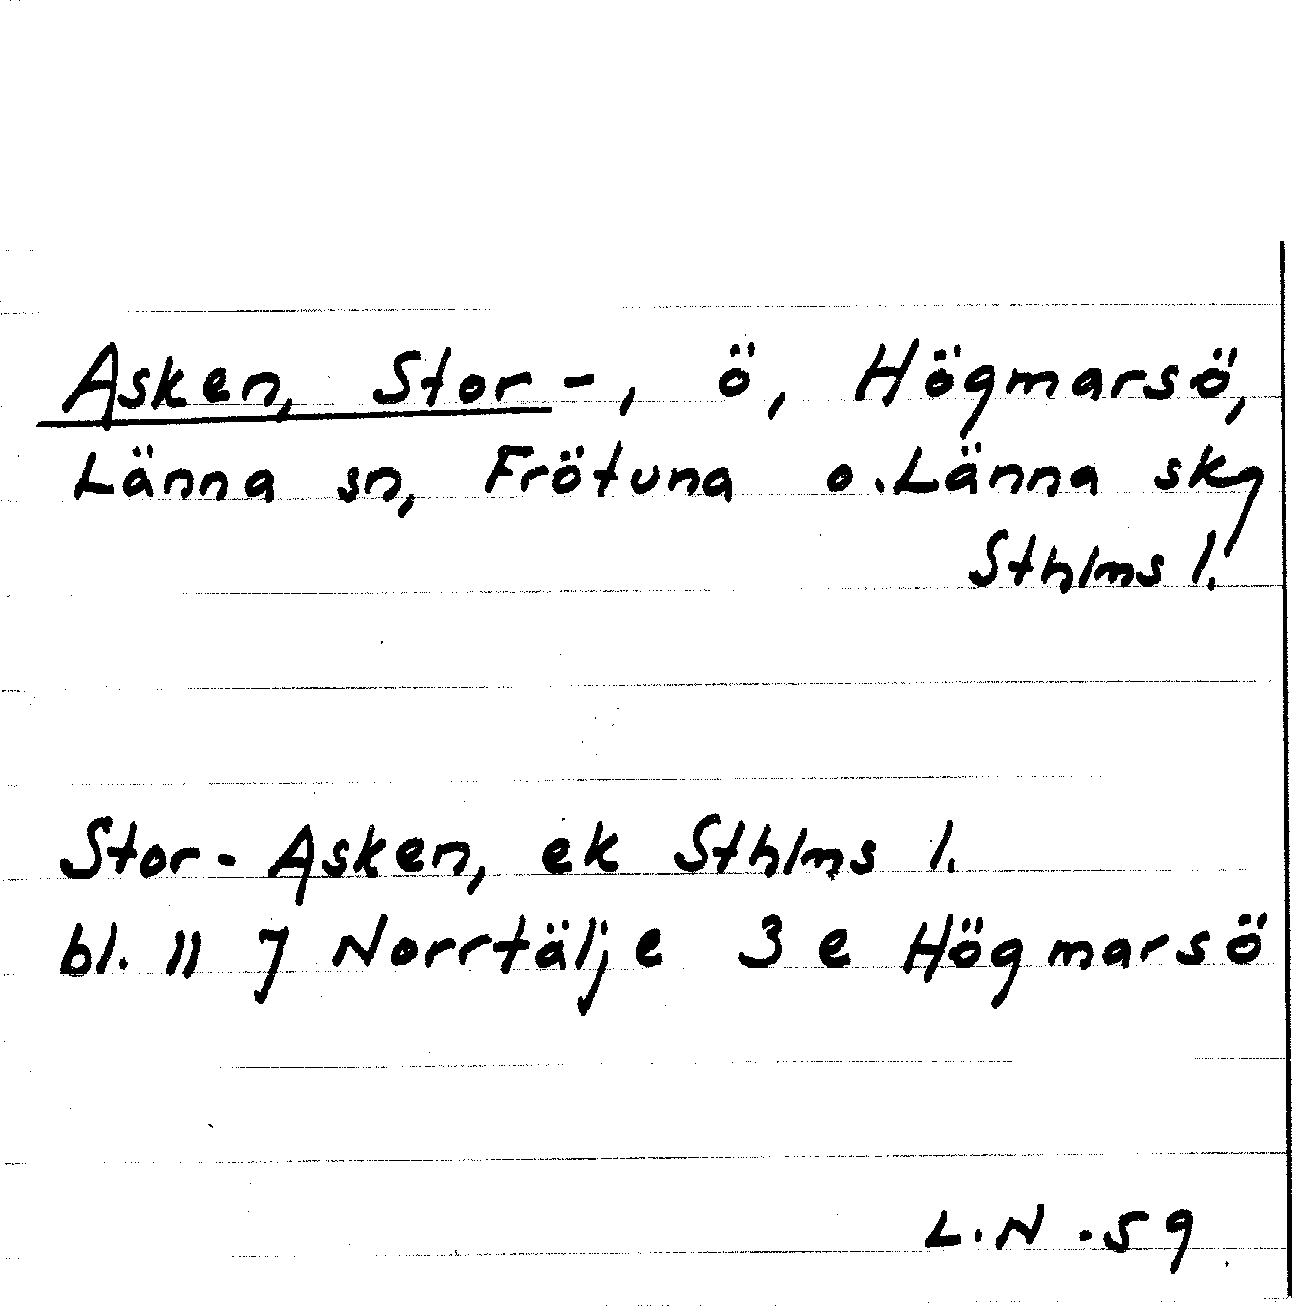 Asken, Stor-, ö, Högmarsö,
Länna sn, Frötuna o. Länna skg
Sthlms l.
Stor-Asken, ek Sthlms l.
bl. 11 J Norrtälje 3 e Högmarsö
L.N. 59